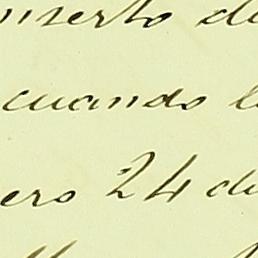 inserto de
cuando l
ero 24 de